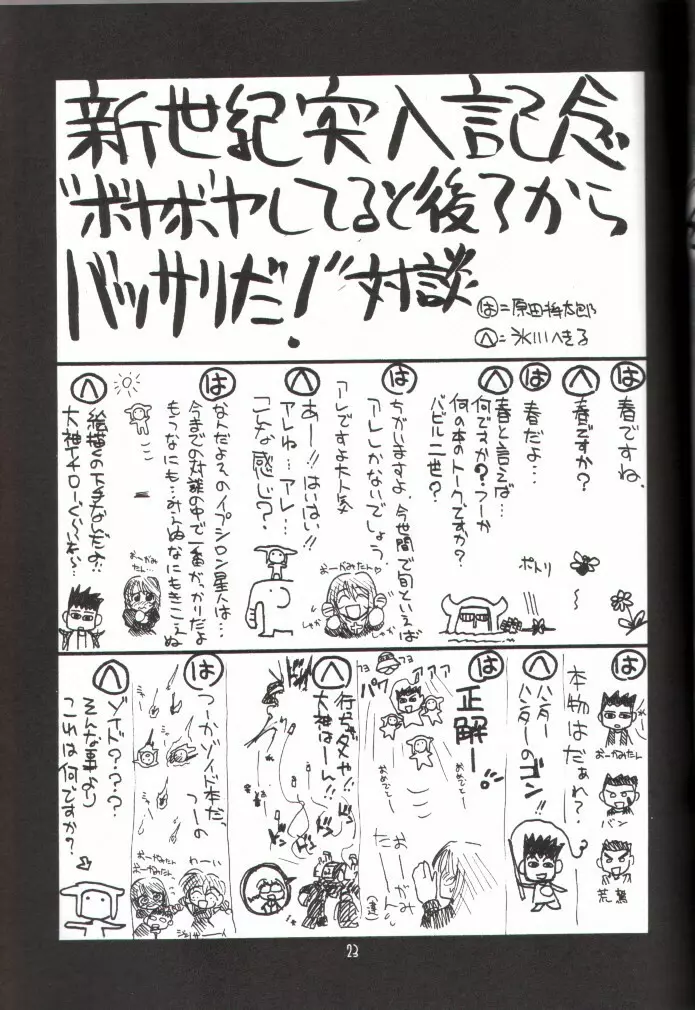 新世紀突入記念
“ボヤボヤしてると後ろから
バッサリだ!”対談
は=原田将太郎
へ=氷川へきる
は
春ですね。
へ
春ですか?
は
春だよ…
ポトリ
へ
春と言えば…
何ですか?つーか
何の本のトークですか?
バビル二世?
は
ちがいますよ、今世間で旬といえば
アレしかないでしょう。
アレですよ大人気
おーがみたん♡
へ
あー!!はいはい!!
アレね…アレ…
こんな感じ?
は
なんだよそのイプシロン星人は…
今までの対談の中で一番がっかりだよ
もうなにも…みえぬなにもきこえぬ
おーがみたん…
へ
絵描くの下手なんだよ!!
は
本物はだぁれ?
おーがみたん
バン
荒鷲
へ
ハンター
ハンターのゴン!!
は
正解ー。
パワァァァ
おめでとー
おめでとー
おーがみたーん
へ
行っちゃダメや!!
大神はーん!!
ドン
ドン
は
つーかゾイド本だ、
つーの
わーい
おーがみたん
おーがみたん
へ
ゾイド???
そんな事より
これは何ですか?
23